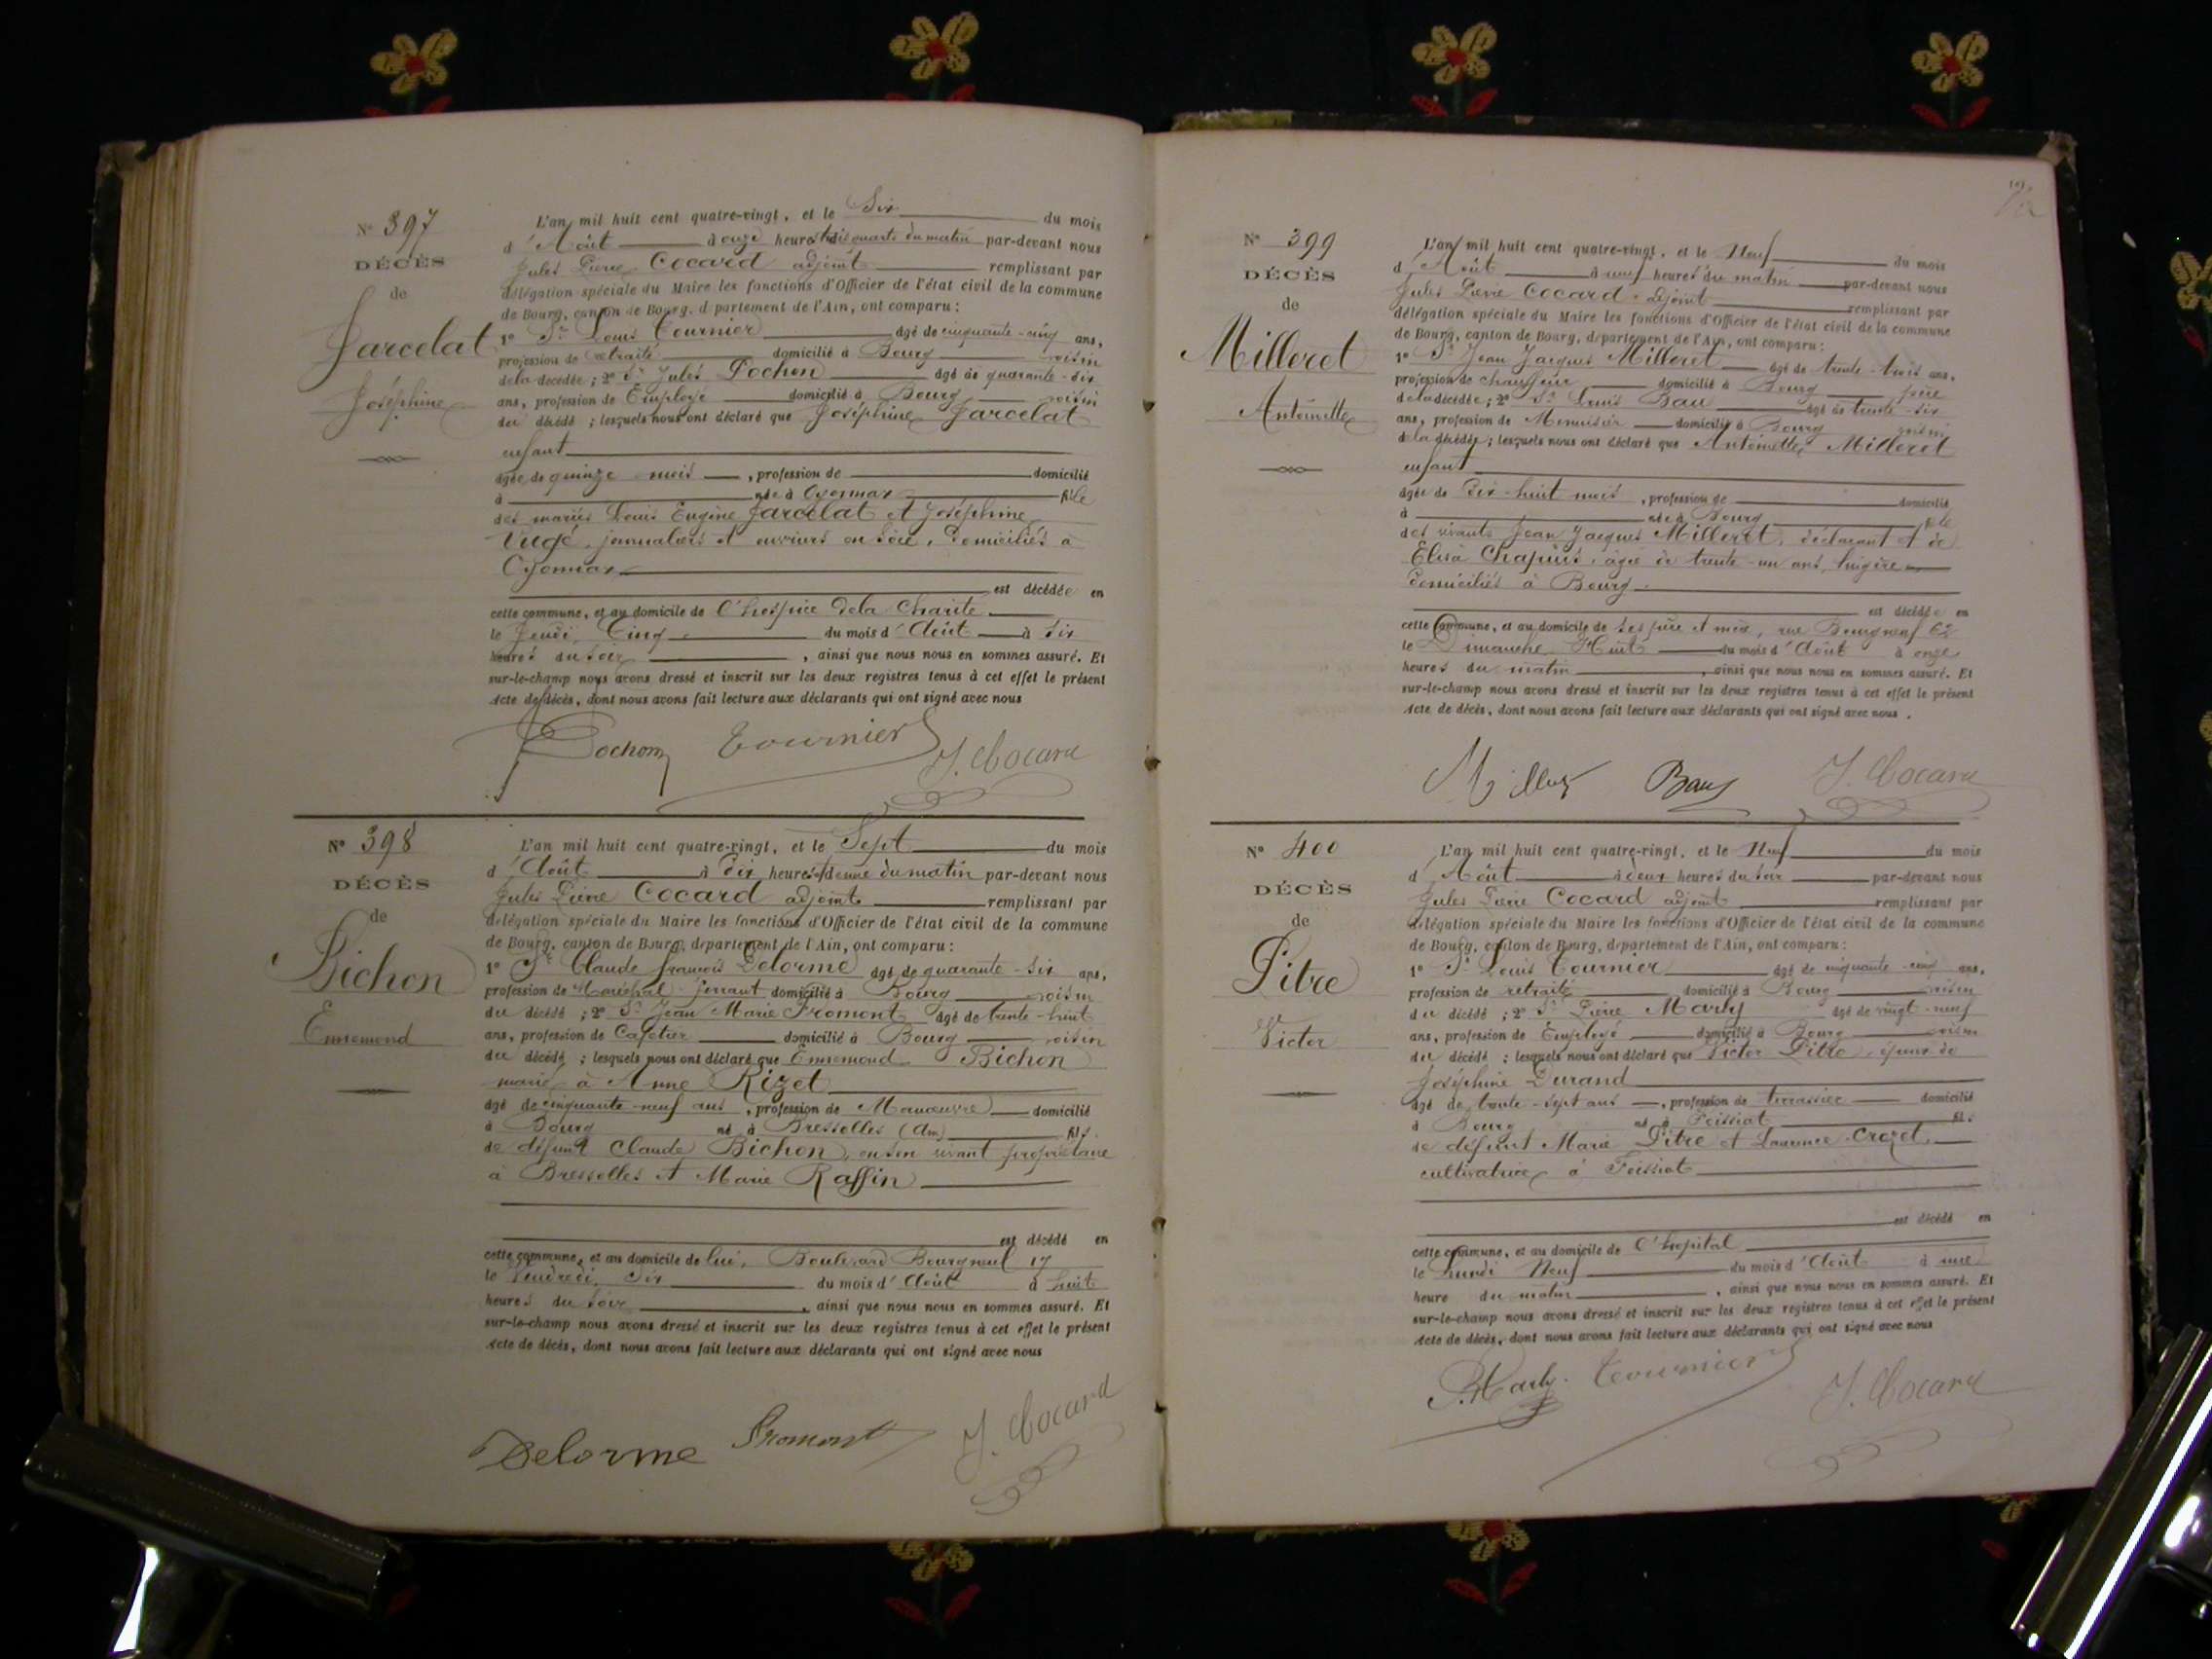 N° 397
DÉCÈS
de
Jarcelat
Joséphine
L'an mil huit cent quatre-vingt, et le Six du mois
d'Août à onze heures trois quarts du matin par-devant nous
Jules Pierre Cocard adjoint remplissant par
délégation spéciale du Maire les fonctions d'Officier de l'état civil de la commune
de Bourg, canton de Bourg, département de l'Ain, ont comparu :
1° Sr Louis Tournier âgé de cinquante-cinq ans,
profession de retraité domicilié à Bourg voisin
de la décédée ; 2° Sr Jules Pochon âgé de quarante-six
ans, profession de Employé domicilié à Bourg voisin
du décédé ; lesquels nous ont déclaré que Joséphine Jarcelat
enfant
âgée de quinze mois, profession de domicilié
à née à Oyonnax fille
des mariés Louis Eugène Jarcelat et Joséphine
journaliers et ouvriers en soie, domiciliés à
Oyonnax
est décédée en
cette commune, et au domicile de l'hospice de la Charité
le Jeudi Cinq du mois d'Août à six
heures du soir, ainsi que nous nous en sommes assuré. Et
sur-le-champ nous avons dressé et inscrit sur les deux registres tenus à cet effet le présent
Acte de décès, dont nous avons fait lecture aux déclarants qui ont signé avec nous
Pochon Tournier J. Cocard
N° 398
DÉCÈS
de
Bichon
Ennemond
L'an mil huit cent quatre-vingt, et le Sept du mois
d'Août à dix heures demie du matin par-devant nous
Jules Pierre Cocard adjoint remplissant par
délégation spéciale du Maire les fonctions d'Officier de l'état civil de la commune
de Bourg, canton de Bourg, département de l'Ain, ont comparu :
1° Sr Claude François Delorme âgé de quarante-six ans,
profession de Maréchal-ferrant domicilié à Bourg voisin
du décédé ; 2° Sr Jean Marie Fromont âgé de trente-huit
ans, profession de Cafetier domicilié à Bourg voisin
du décédé ; lesquels nous ont déclaré que Ennemond Bichon
marié à Anne Rizet
âgé de cinquante-neuf ans, profession de Manœuvre domicilié
à Bourg né à Bressolles (Ain) fils
de défunt Claude Bichon, en son vivant propriétaire
à Bressolles et Marie Raffin
est décédé en
cette commune, et au domicile de lui, Boulevard Bourgneuf 17
le Vendredi Six du mois d'Août à huit
heures du soir, ainsi que nous nous en sommes assuré. Et
sur-le-champ nous avons dressé et inscrit sur les deux registres tenus à cet effet le présent
Acte de décès, dont nous avons fait lecture aux déclarants qui ont signé avec nous
Delorme Fromont J. Cocard
N° 399
DÉCÈS
de
Milleret
Antoinette
L'an mil huit cent quatre-vingt, et le Neuf du mois
d'Août à neuf heures du matin par-devant nous
Jules Pierre Cocard adjoint remplissant par
délégation spéciale du Maire les fonctions d'Officier de l'état civil de la commune
de Bourg, canton de Bourg, département de l'Ain, ont comparu :
1° Sr Jean Jacques Milleret âgé de trente-trois ans,
profession de chauffeur domicilié à Bourg père
de la décédée ; 2° Sr Louis Bau âgé de trente-six
ans, profession de Menuisier domicilié à Bourg voisin
de la décédée ; lesquels nous ont déclaré que Antoinette Milleret
enfant
âgée de dix-huit mois, profession de domicilié
à née à Bourg fille
des vivants Jean Jacques Milleret, déclarant et de
Elisa Chapuis, âgée de trente-un ans, lingère
domiciliés à Bourg
est décédée en
cette commune, et au domicile de ses père et mère, rue Bourgneuf 62
le Dimanche Huit du mois d'Août à onze
heures du matin, ainsi que nous nous en sommes assuré. Et
sur-le-champ nous avons dressé et inscrit sur les deux registres tenus à cet effet le présent
Acte de décès, dont nous avons fait lecture aux déclarants qui ont signé avec nous.
Bau J. Cocard
N° 400
DÉCÈS
de
Pitre
Victor
L'an mil huit cent quatre-vingt, et le Neuf du mois
d'Août à deux heures du soir par-devant nous
Jules Pierre Cocard adjoint remplissant par
délégation spéciale du Maire les fonctions d'Officier de l'état civil de la commune
de Bourg, canton de Bourg, département de l'Ain, ont comparu :
1° Sr Louis Tournier âgé de cinquante-cinq ans,
profession de retraité domicilié à Bourg voisin
du décédé ; 2° Sr Pierre Marly âgé de vingt-neuf
ans, profession de Employé domicilié à Bourg voisin
du décédé ; lesquels nous ont déclaré que Victor Pitre, époux de
Joséphine Durand
âgé de trente-sept ans, profession de terrassier domicilié
à Bourg né à Foissiat fils
de défunt Marie Pitre et Laurence Crozet,
cultivatrice à Foissiat
est décédé en
cette commune, et au domicile de l'hôpital
le Lundi Neuf du mois d'Août à une
heure du matin, ainsi que nous nous en sommes assuré. Et
sur-le-champ nous avons dressé et inscrit sur les deux registres tenus à cet effet le présent
Acte de décès, dont nous avons fait lecture aux déclarants qui ont signé avec nous
P. Marly Tournier J. Cocard